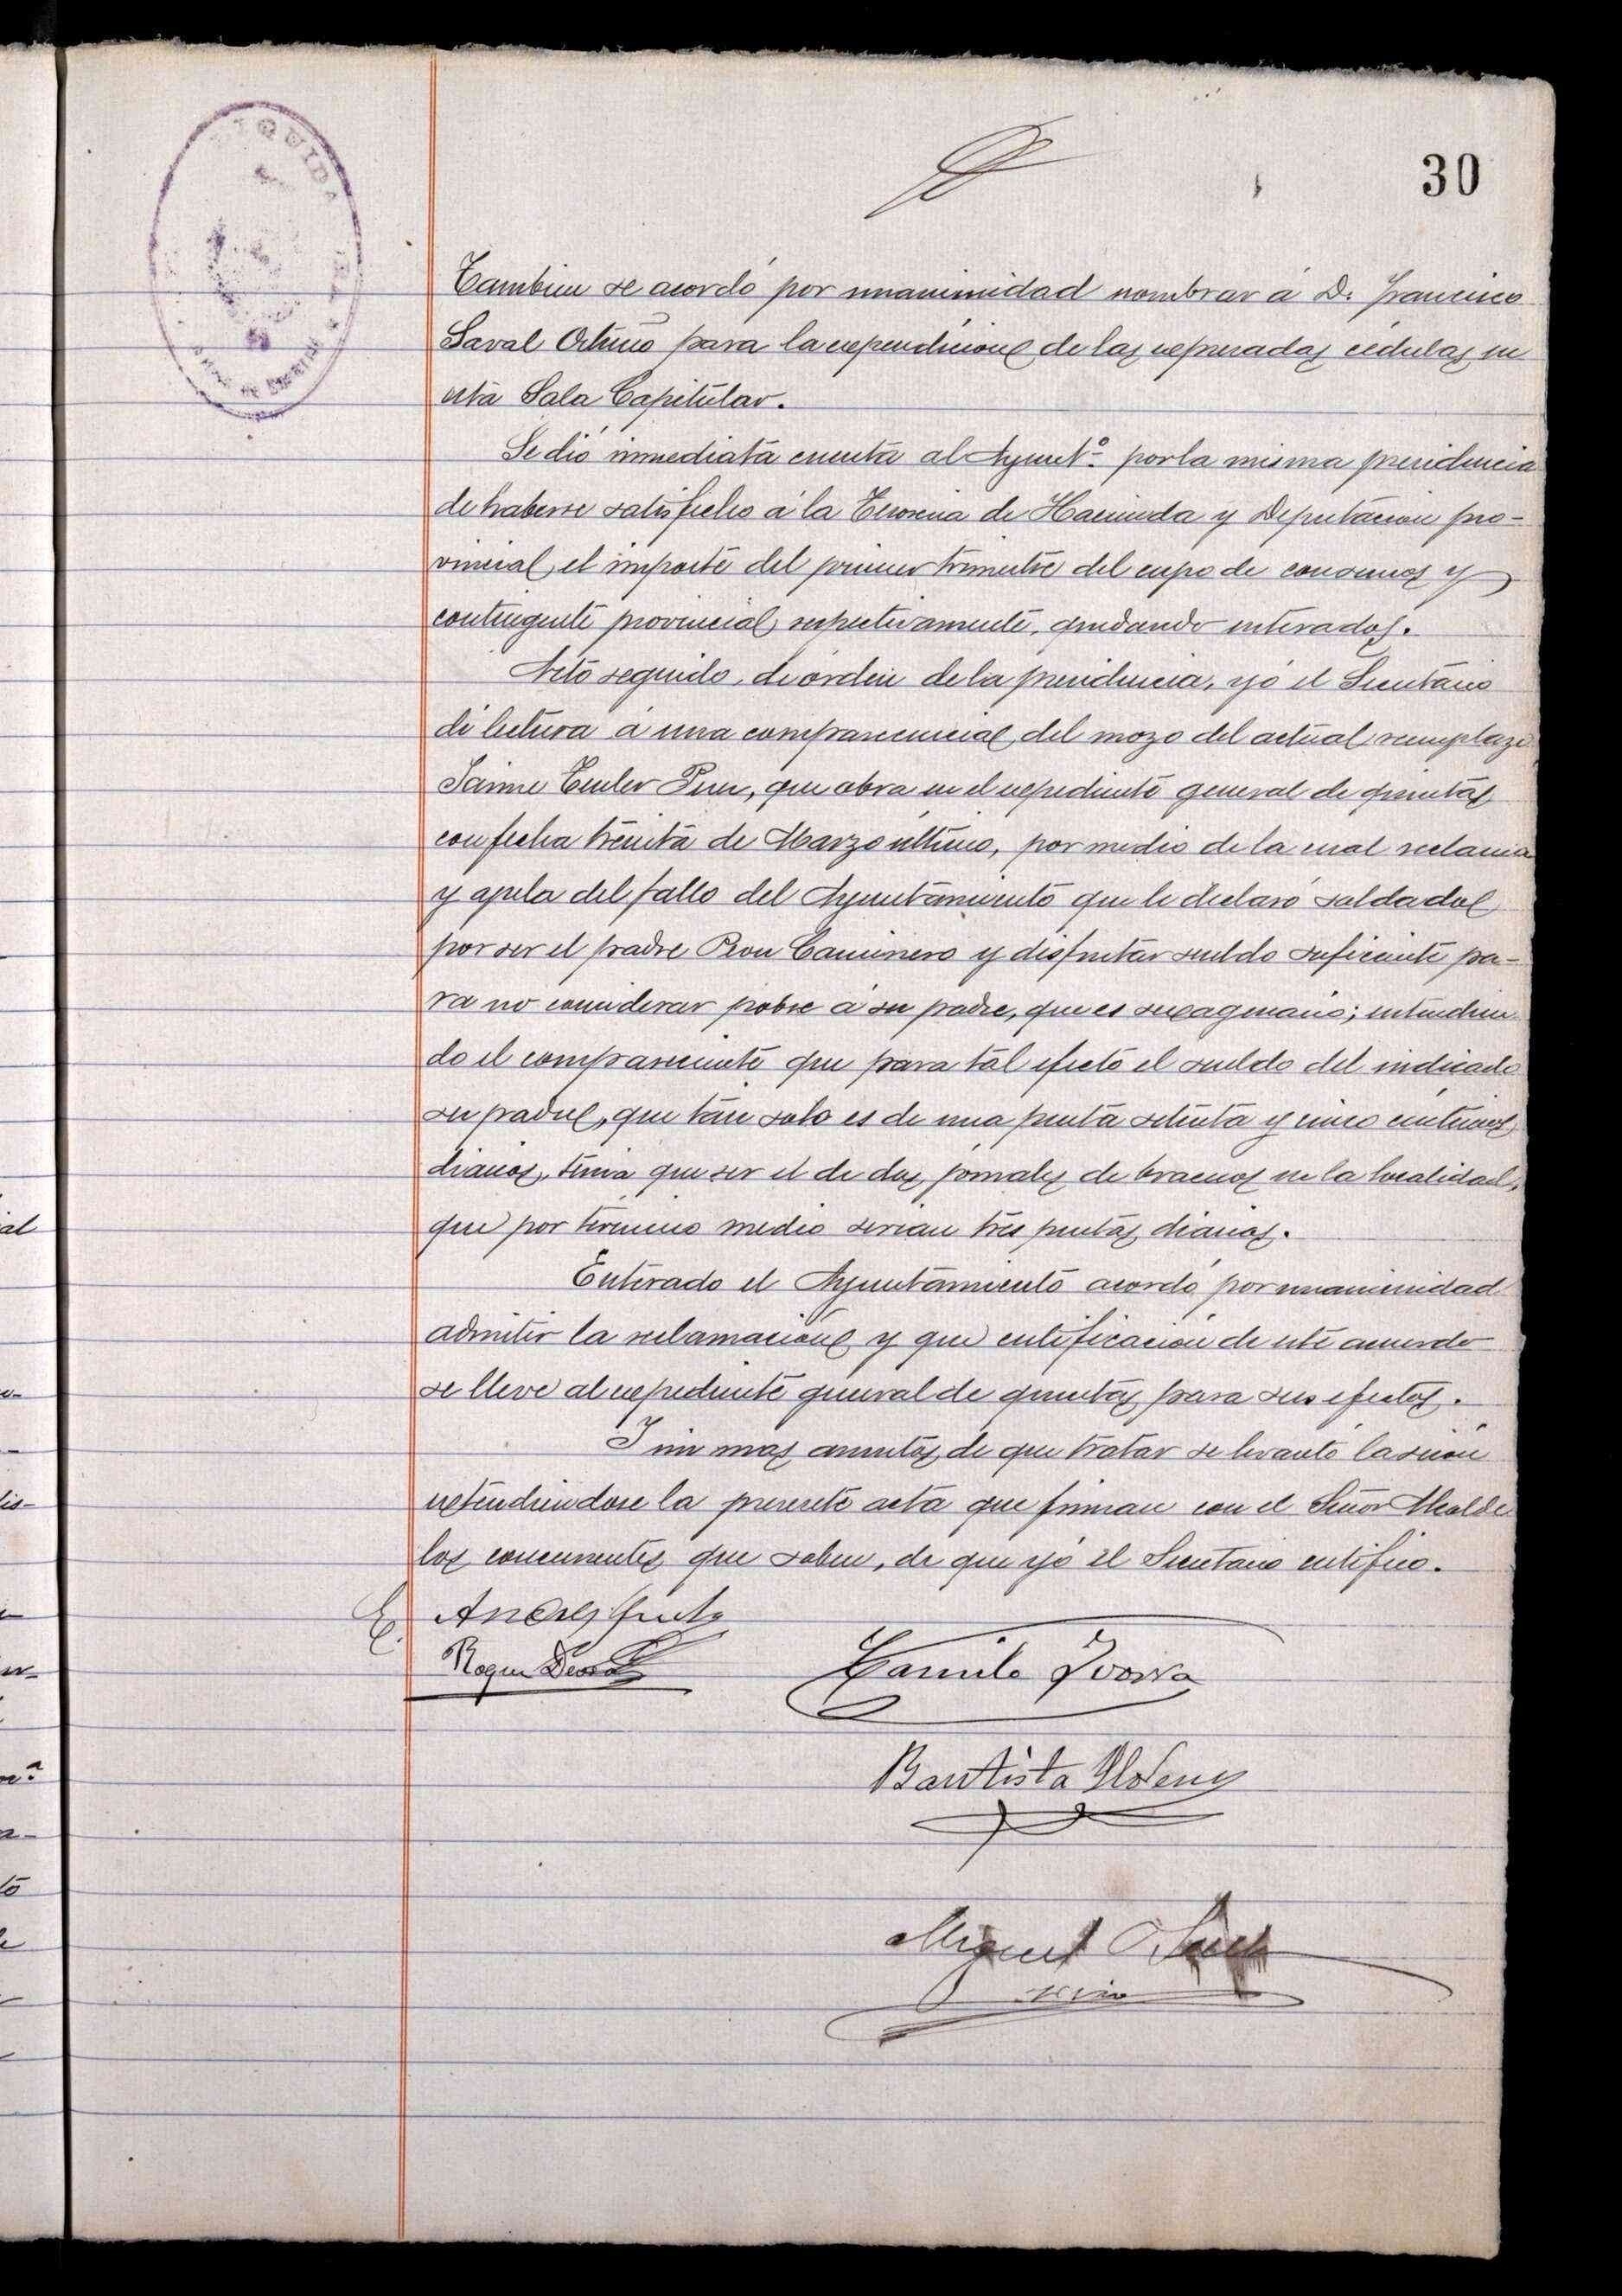 30
Tambien se acordó por unanimidad nombrar á D. Francisco
Saval Ortuño para la expendicion de las expresadas cédulas en
esta Sala Capitular.
Se dió inmediata cuenta al Ayunt.º por la misma presidencia
de haberse satisfecho á la Tesoreria de Hacienda y Deputacion pro-
vincial, el importe del primer trimestre del cupo de consumos y
contingente provincial, respectivamente, quedando enterados.
Acto seguido, de órden de la presidencia, yó el Secretario
di lectura á una comparecencia, del mozo del actual reemplazo
Jaime, que obra en el expediente general de quintas
con fecha treinta de Marzo último, por medio de la cual reclama
y apela del fallo del Ayuntamiento que le declaró soldado
por ser el padre Peon Caminero y disfrutar sueldo suficiente pa-
ra no considerar pobre á su padre, que es sexagenario; entendien
do el compareciente que para tal efecto el sueldo del indicado
su padre, que tan solo es de una peseta setenta y cinco centimos
diarios, tenia que ser el de dos jornales de braceros en la localidad,
que por término medio serian tres pesetas diarias.
Enterado el Ayuntamiento acordó por unanimidad
admitir la reclamacion y que certificacion de este acuerdo
se lleve al expediente general de quintas para sus efectos.
Y sin mas asuntos de que tratar se levantó la sesion
extendiendose la presente acta que firman con el Señor Alcalde
los concurrentes que saben, de que yó el Secretario certifico.
Roque
Camilo Ivorra
Bautista Llorens
Miguel